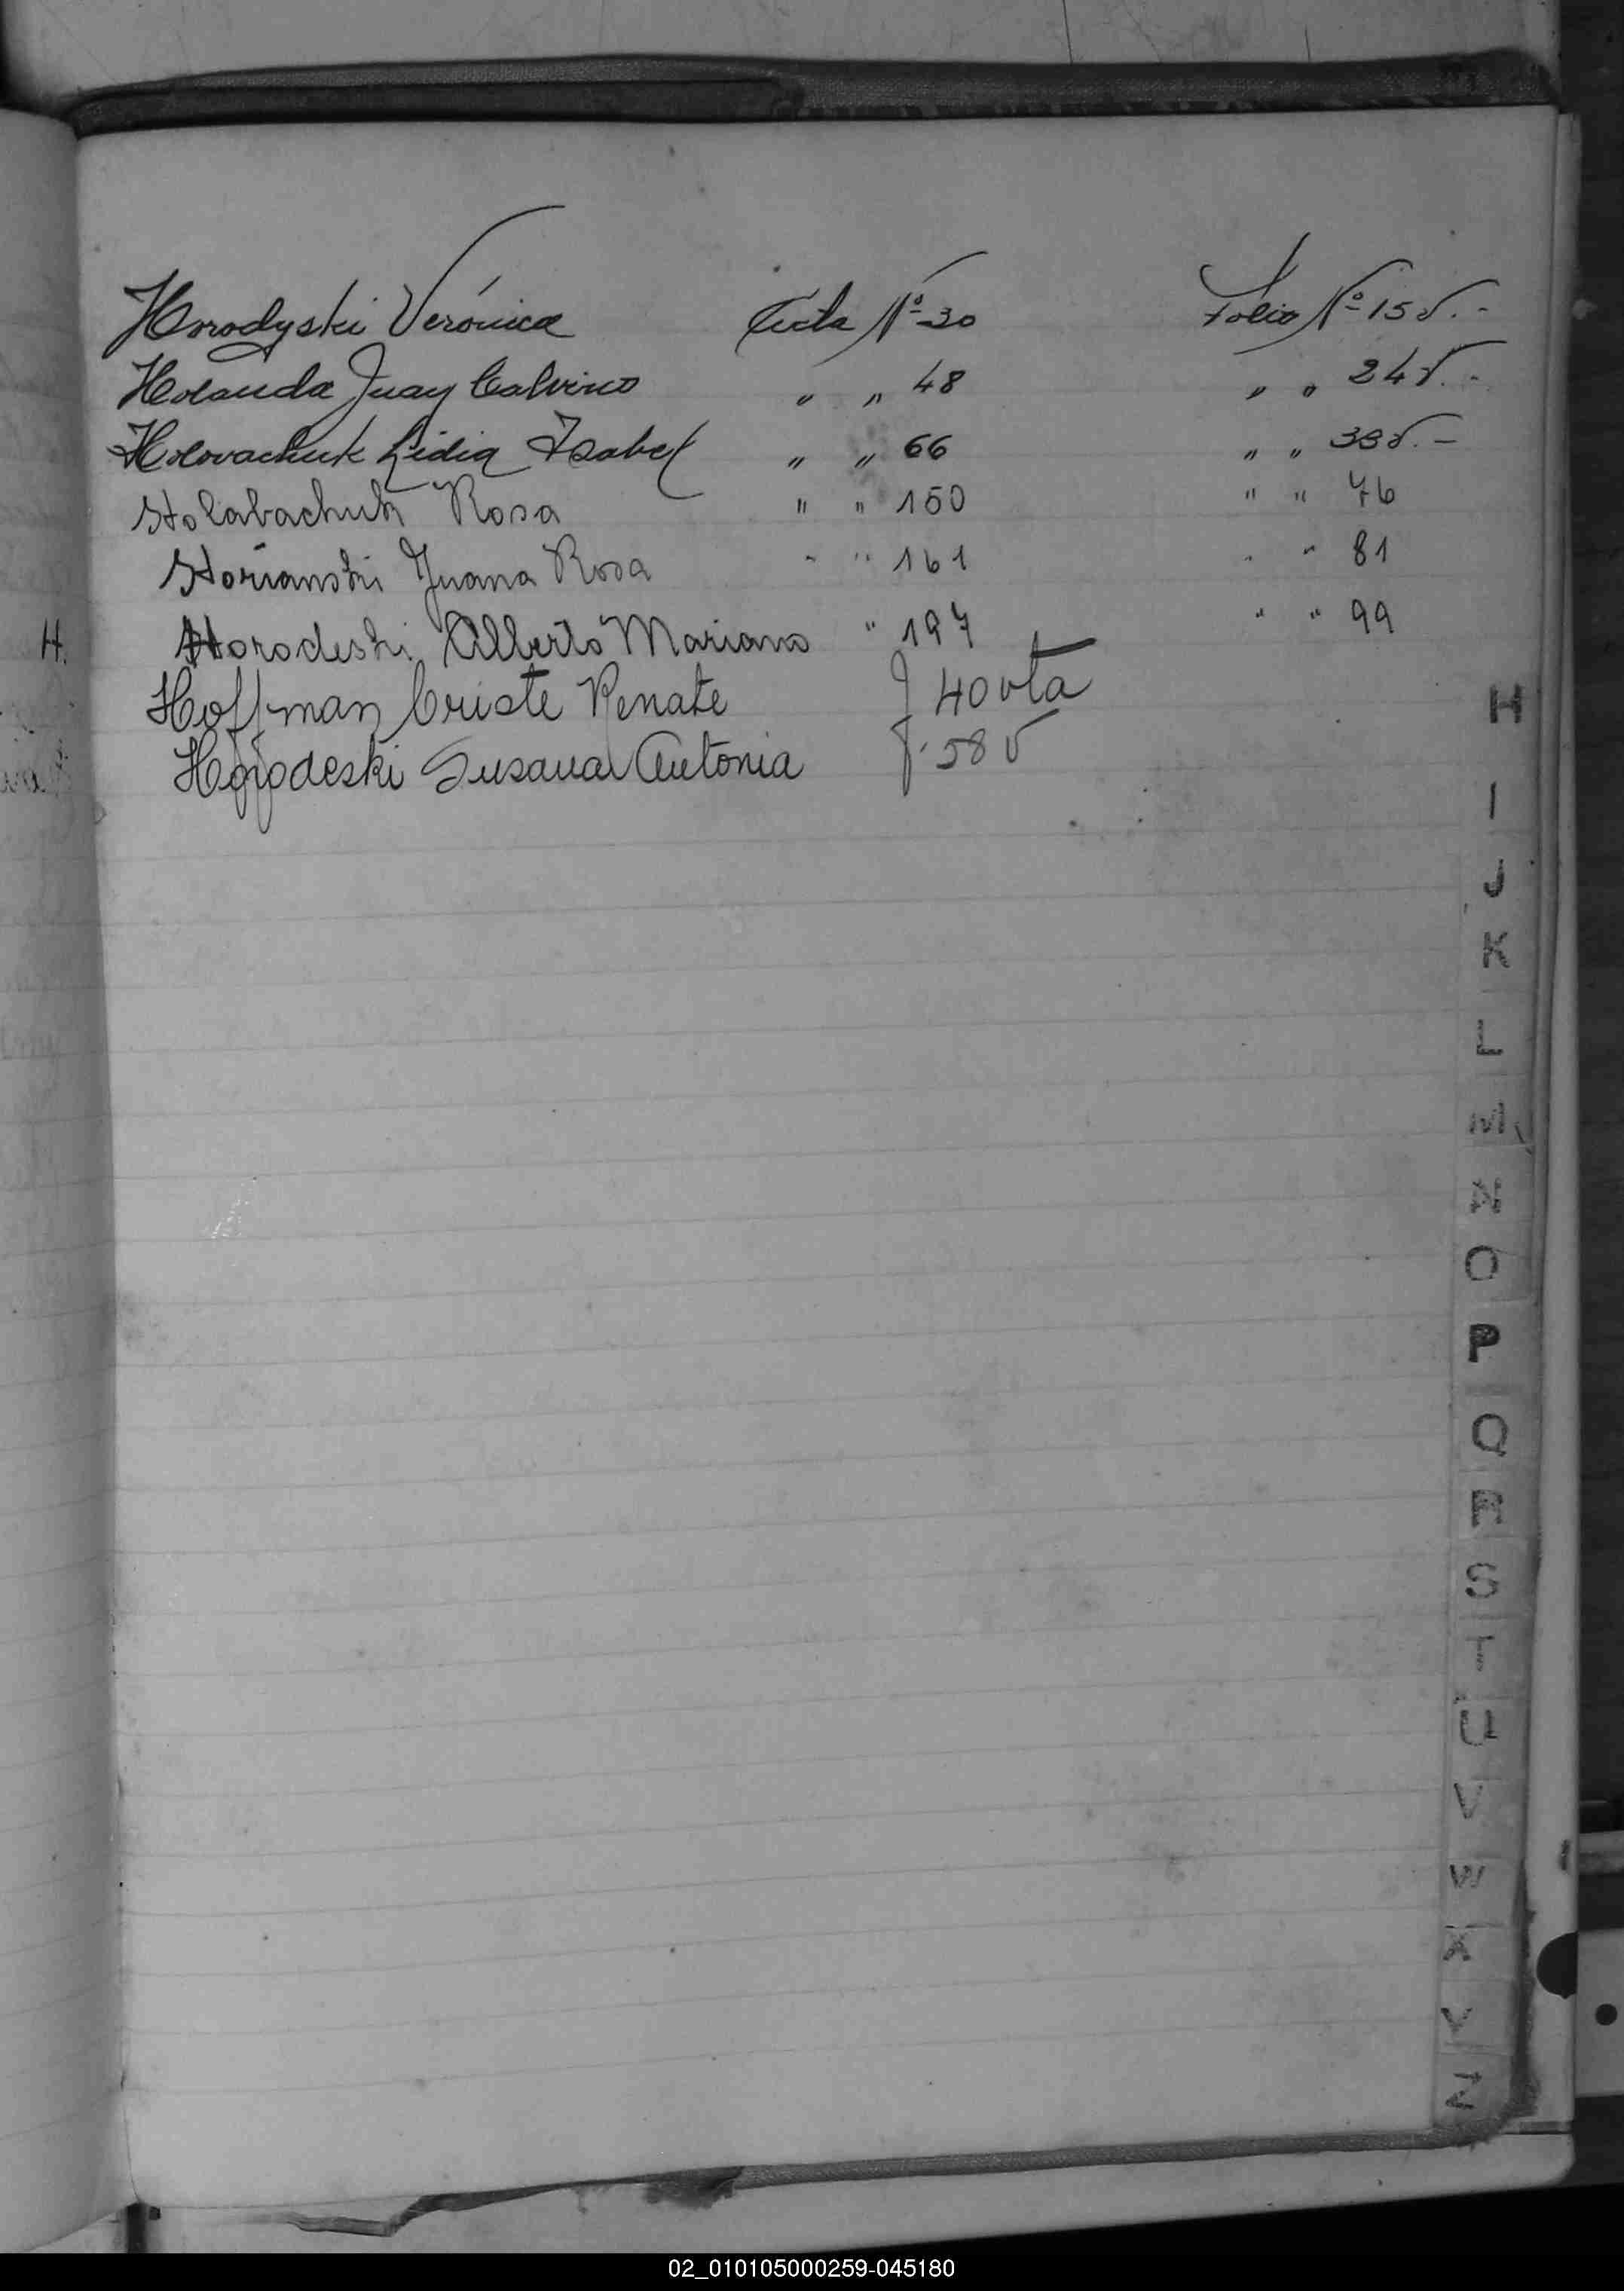 Horodyski Verónica Acta Nº 30 Folio Nº 15 v. -
Holanda Juan Calvino " " 48 " " 24 v. -
Holovachuk Lidia Isabel " " 66 " " 33 v. -
Holabachuk Rosa " " 150 " " 76
Horianski Juana Rosa " " 161 " " 81
H. Horodeski Alberto Mariano " 197 " " 99
Hoffman Criste Renate f 40 vta
Horodeski Susana Antonia f. 58 v
H
I
J
K
L
M
N
O
P
Q
R
S
T
U
V
W
X
Y
Z
02_010105000259-045180